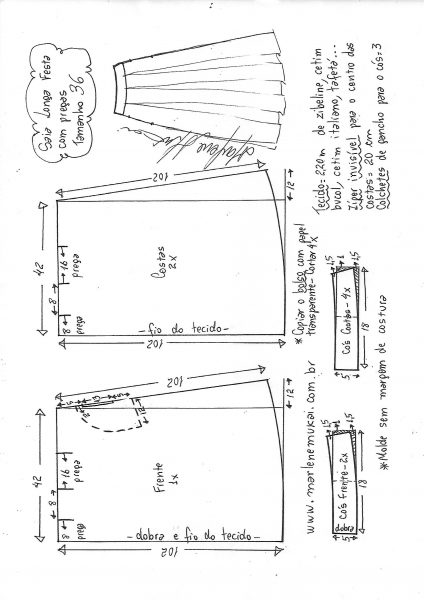 Saia Longa Festa
com pregas
Tamanho 36
Tecido = 2,20m de zibeline, cetim
bucol, cetim italiano, tafetá...
Ziper invisível para o centro das
costas = 20 cm
Colchetes de gancho para o cós = 3
102
12
42
16
prega
8
8
prega
Costas
2x
- fio do tecido -
102
* Copiar o bolso com papel
transparente - Cortar 4x
1,5
1
1,5
Cós Costas - 4x
18
5
102
12
5
13
5
2
12
42
16
prega
8
8
prega
Frente
1x
- dobra e fio do tecido -
102
www.marlenemukai.com.br
1
1,5
Cós Frente - 2x
dobra
18
5
* Molde sem margem de costura